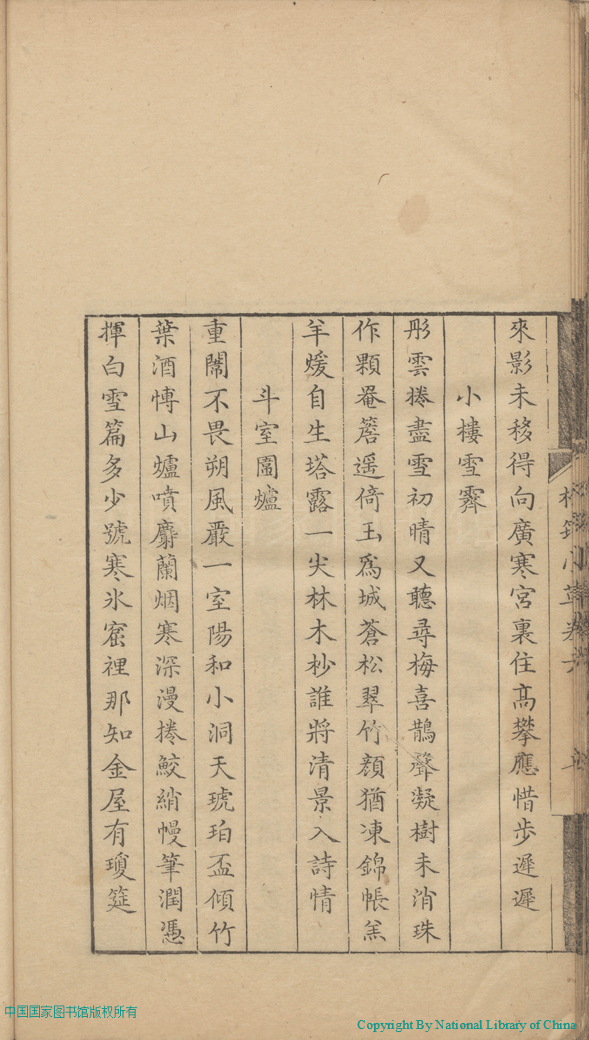 來影未移得向廣寒宮裏住高攀應惜步遲遲
小樓雪霽
彤雲捲盡雪初晴又聽尋梅喜鵲聲凝樹未消珠
作顆罨簷遥倚玉爲城蒼松翠竹顔猶凍錦帳羔
羊煖自生塔露一尖林木杪誰將清景入詩情
斗室圍爐
重閙不畏朔風嚴一室陽和小洞天琥珀盃傾竹
葉酒博山爐噴麝蘭烟寒深漫捲鮫綃幔筆潤憑
揮白雪篇多少號寒氷窟裡那知金屋有瓊筵
中国国家图书馆版权所有
Copyright By National Library of China